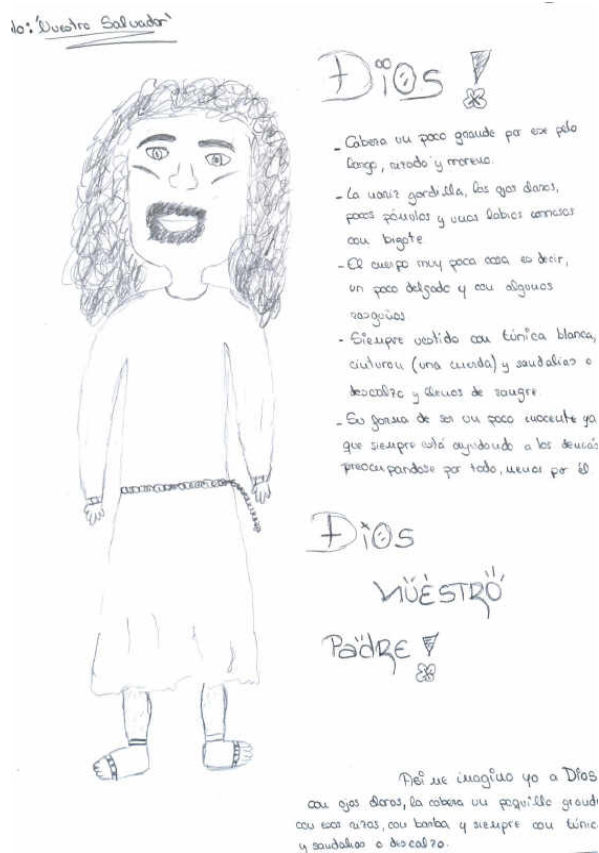 lo: 'Nuestro Salvador'
Dios !
- Cabeza un poco grande por ese pelo
largo, rizado y moreno.
- La nariz gordilla, los ojos claros,
pocos pómulos y unos labios carnosos
con bigote
- El cuerpo muy poca cosa es decir,
un poco delgado y con algunos
rasguños
- Siempre vestido con túnica blanca,
cinturon (una cuerda) y sandalias o
descalzo y llenos de sangre.
- Su forma de ser un poco inocente ya
que siempre está ayudando a los demás
preocupandose por todo, menos por él
Dios
NUESTRO
PadRE !
Asi me imagino yo a Dios
con ojos claros, la cabeza un poquillo grande
con esos rizos, con barba y siempre con túnica
y sandalias o discalzo.